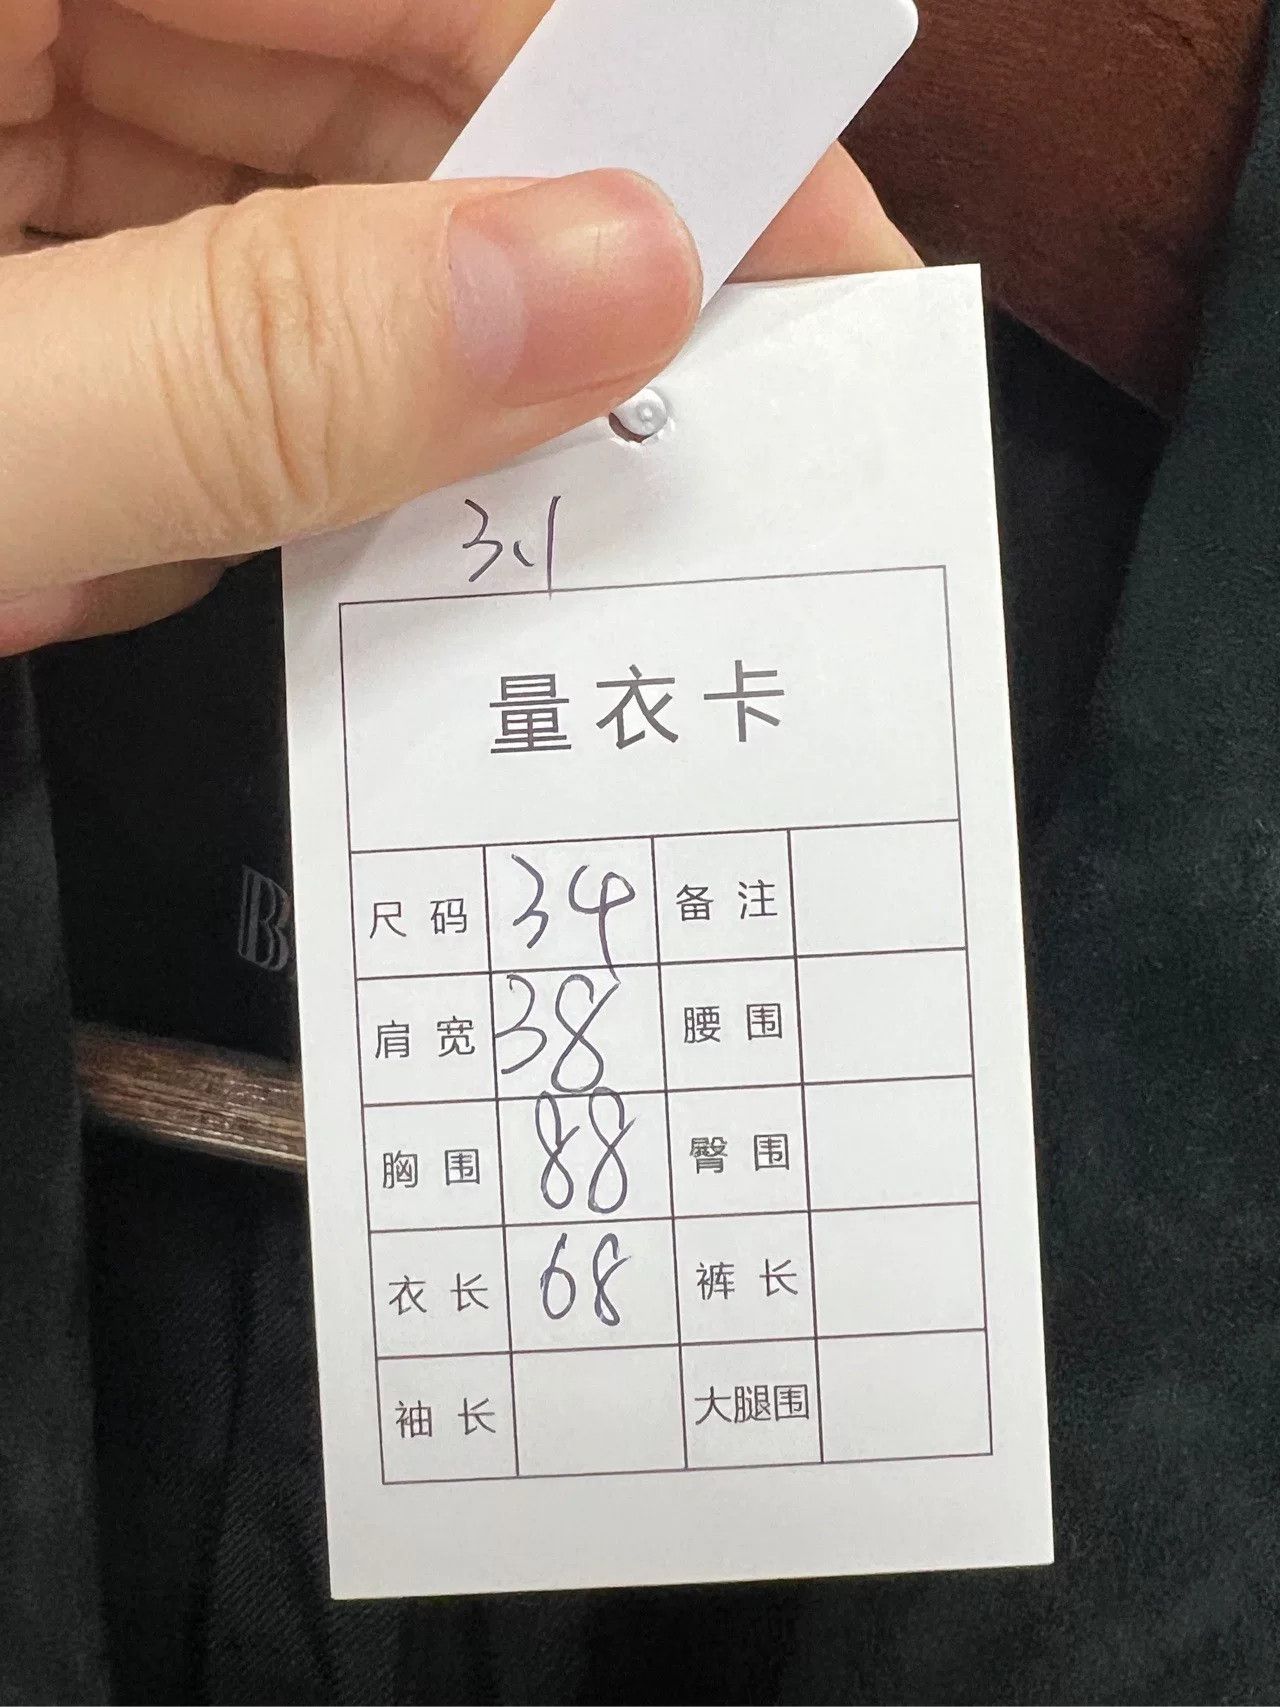 量衣卡
尺码 34 备注
肩宽 38 腰围
胸围 88 臀围
衣长 68 裤长
袖长 大腿围